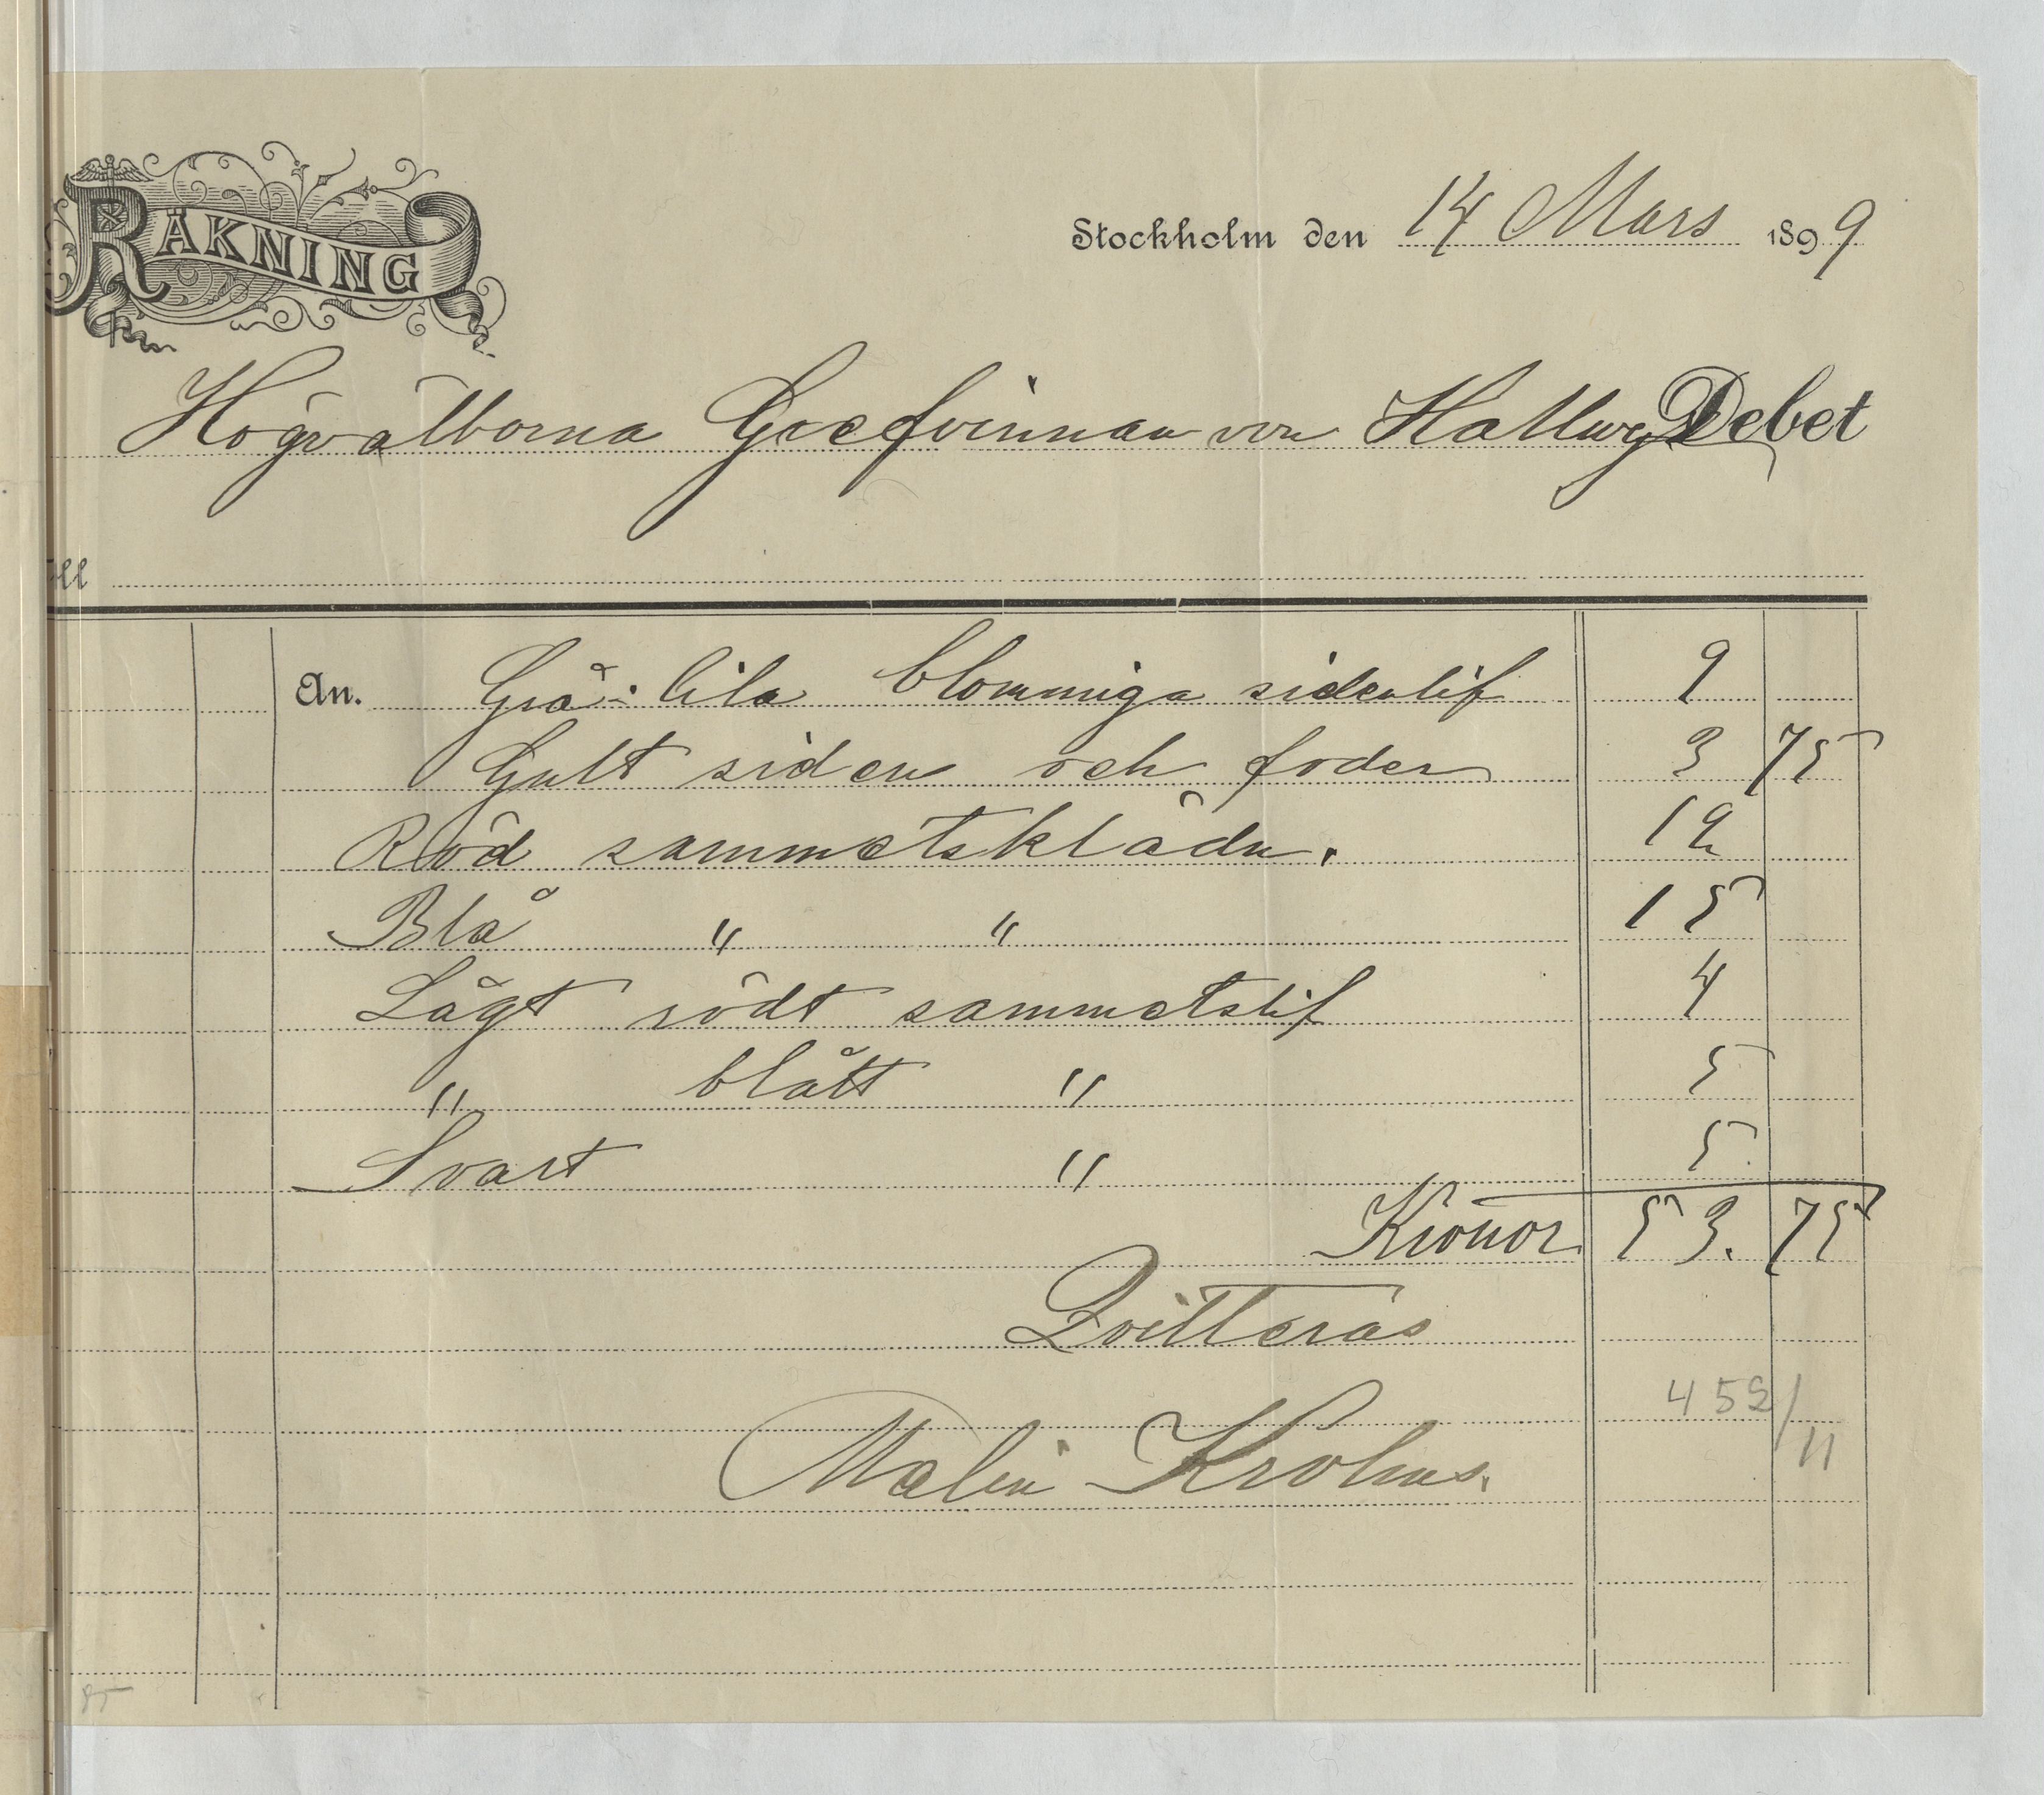 RÄKNING
Stockholm den 14 Mars 1899
Högvälborna Grefvinnan von Hallwyl Debet
An. Grå-lila blommiga sidenlif 9
Gult siden och foder 3 75
Röd sammetsklädn. 12
Blå " " 15
Lågt rödt sammetslif 4
" blått " 5
Svart " 5
Kronor 53. 75
Qvitteras
452/11
Malin